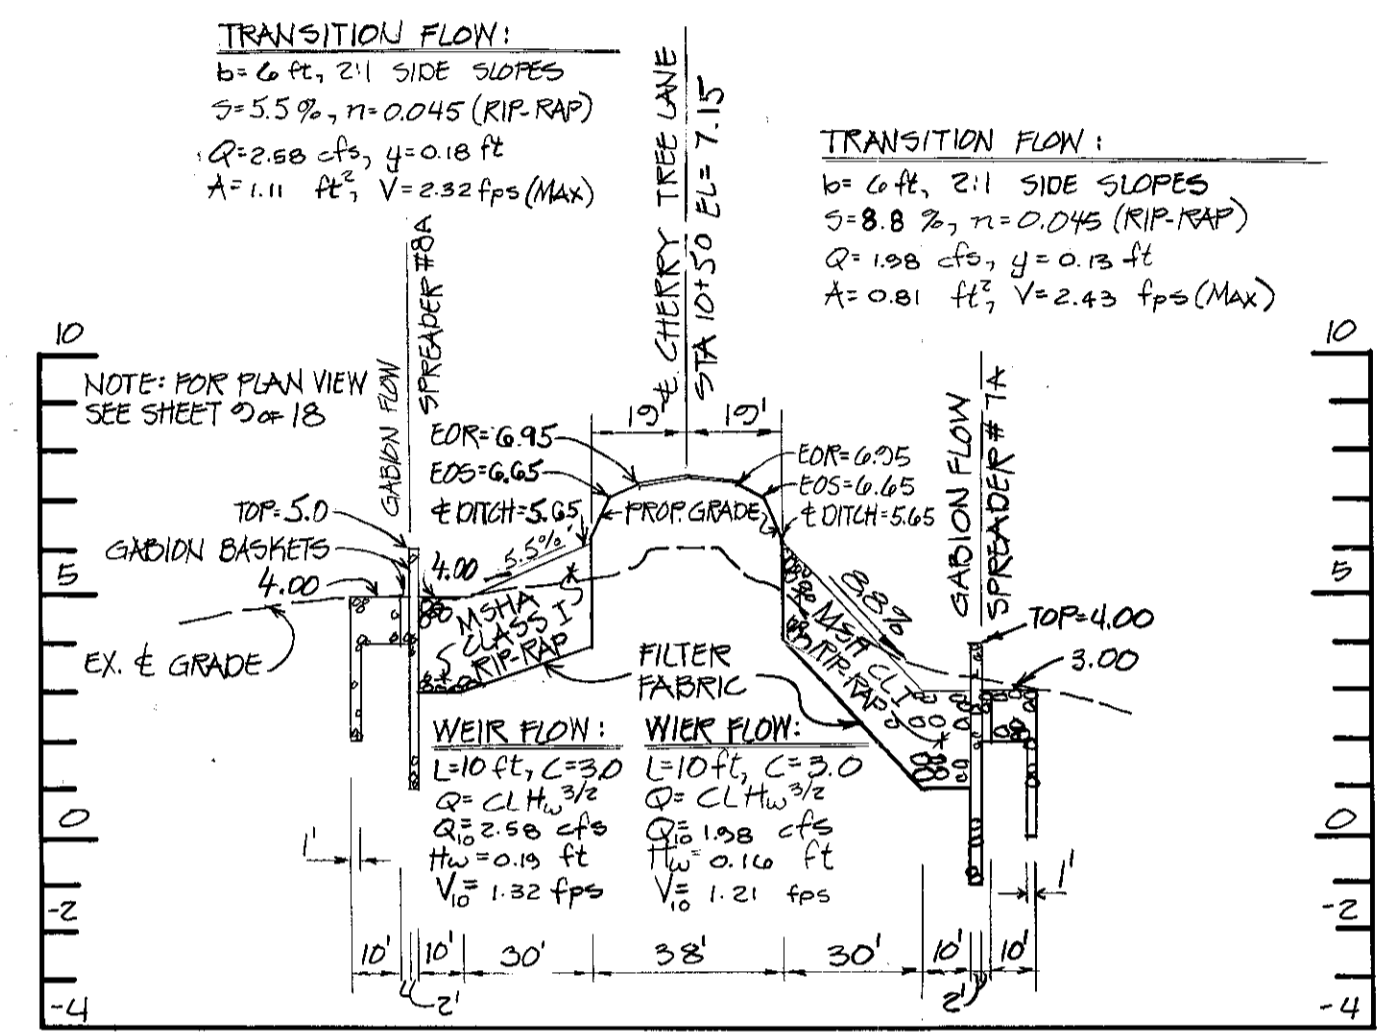 TRANSITION FLOW:
b=6 ft, 2:1 SIDE SLOPES
S=5.5%, n=0.045 (RIP-RAP)
Q=2.58 cfs, y=0.18 ft
A=1.11 ft², V=2.32 fps (MAX)
℄ CHERRY TREE LANE
STA 10+50 EL=7.15
TRANSITION FLOW:
b=6 ft, 2:1 SIDE SLOPES
S=8.8 %, n=0.045 (RIP-RAP)
Q=1.98 cfs, y=0.13 ft
A=0.81 ft², V=2.43 fps (MAX)
10
10
NOTE: FOR PLAN VIEW
SEE SHEET 9 OF 18
GABION FLOW
SPREADER #8A
19'
19'
EOR=6.95
EOS=6.65
℄ DITCH=5.65
PROP. GRADE
EOR=6.95
EOS=6.65
℄ DITCH=5.65
GABION FLOW
SPREADER #7A
TOP=5.0
GABION BASKETS
4.00
4.00
5.5%
8.8%
5
5
EX. ℄ GRADE
MSHA
CLASS I
RIP-RAP
*
*
MSHA CL I
RIP-RAP
*
*
TOP=4.00
3.00
FILTER
FABRIC
WEIR FLOW:
L=10 ft, C=3.0
Q=CLHw^3/2
Q10=2.58 cfs
Hw=0.19 ft
V10=1.32 fps
WIER FLOW:
L=10 ft, C=3.0
Q=CLHw^3/2
Q10=1.98 cfs
Hw=0.16 ft
V10=1.21 fps
0
0
1'
1'
-2
-2
10'
10'
30'
38'
30'
10'
10'
2'
2'
-4
-4